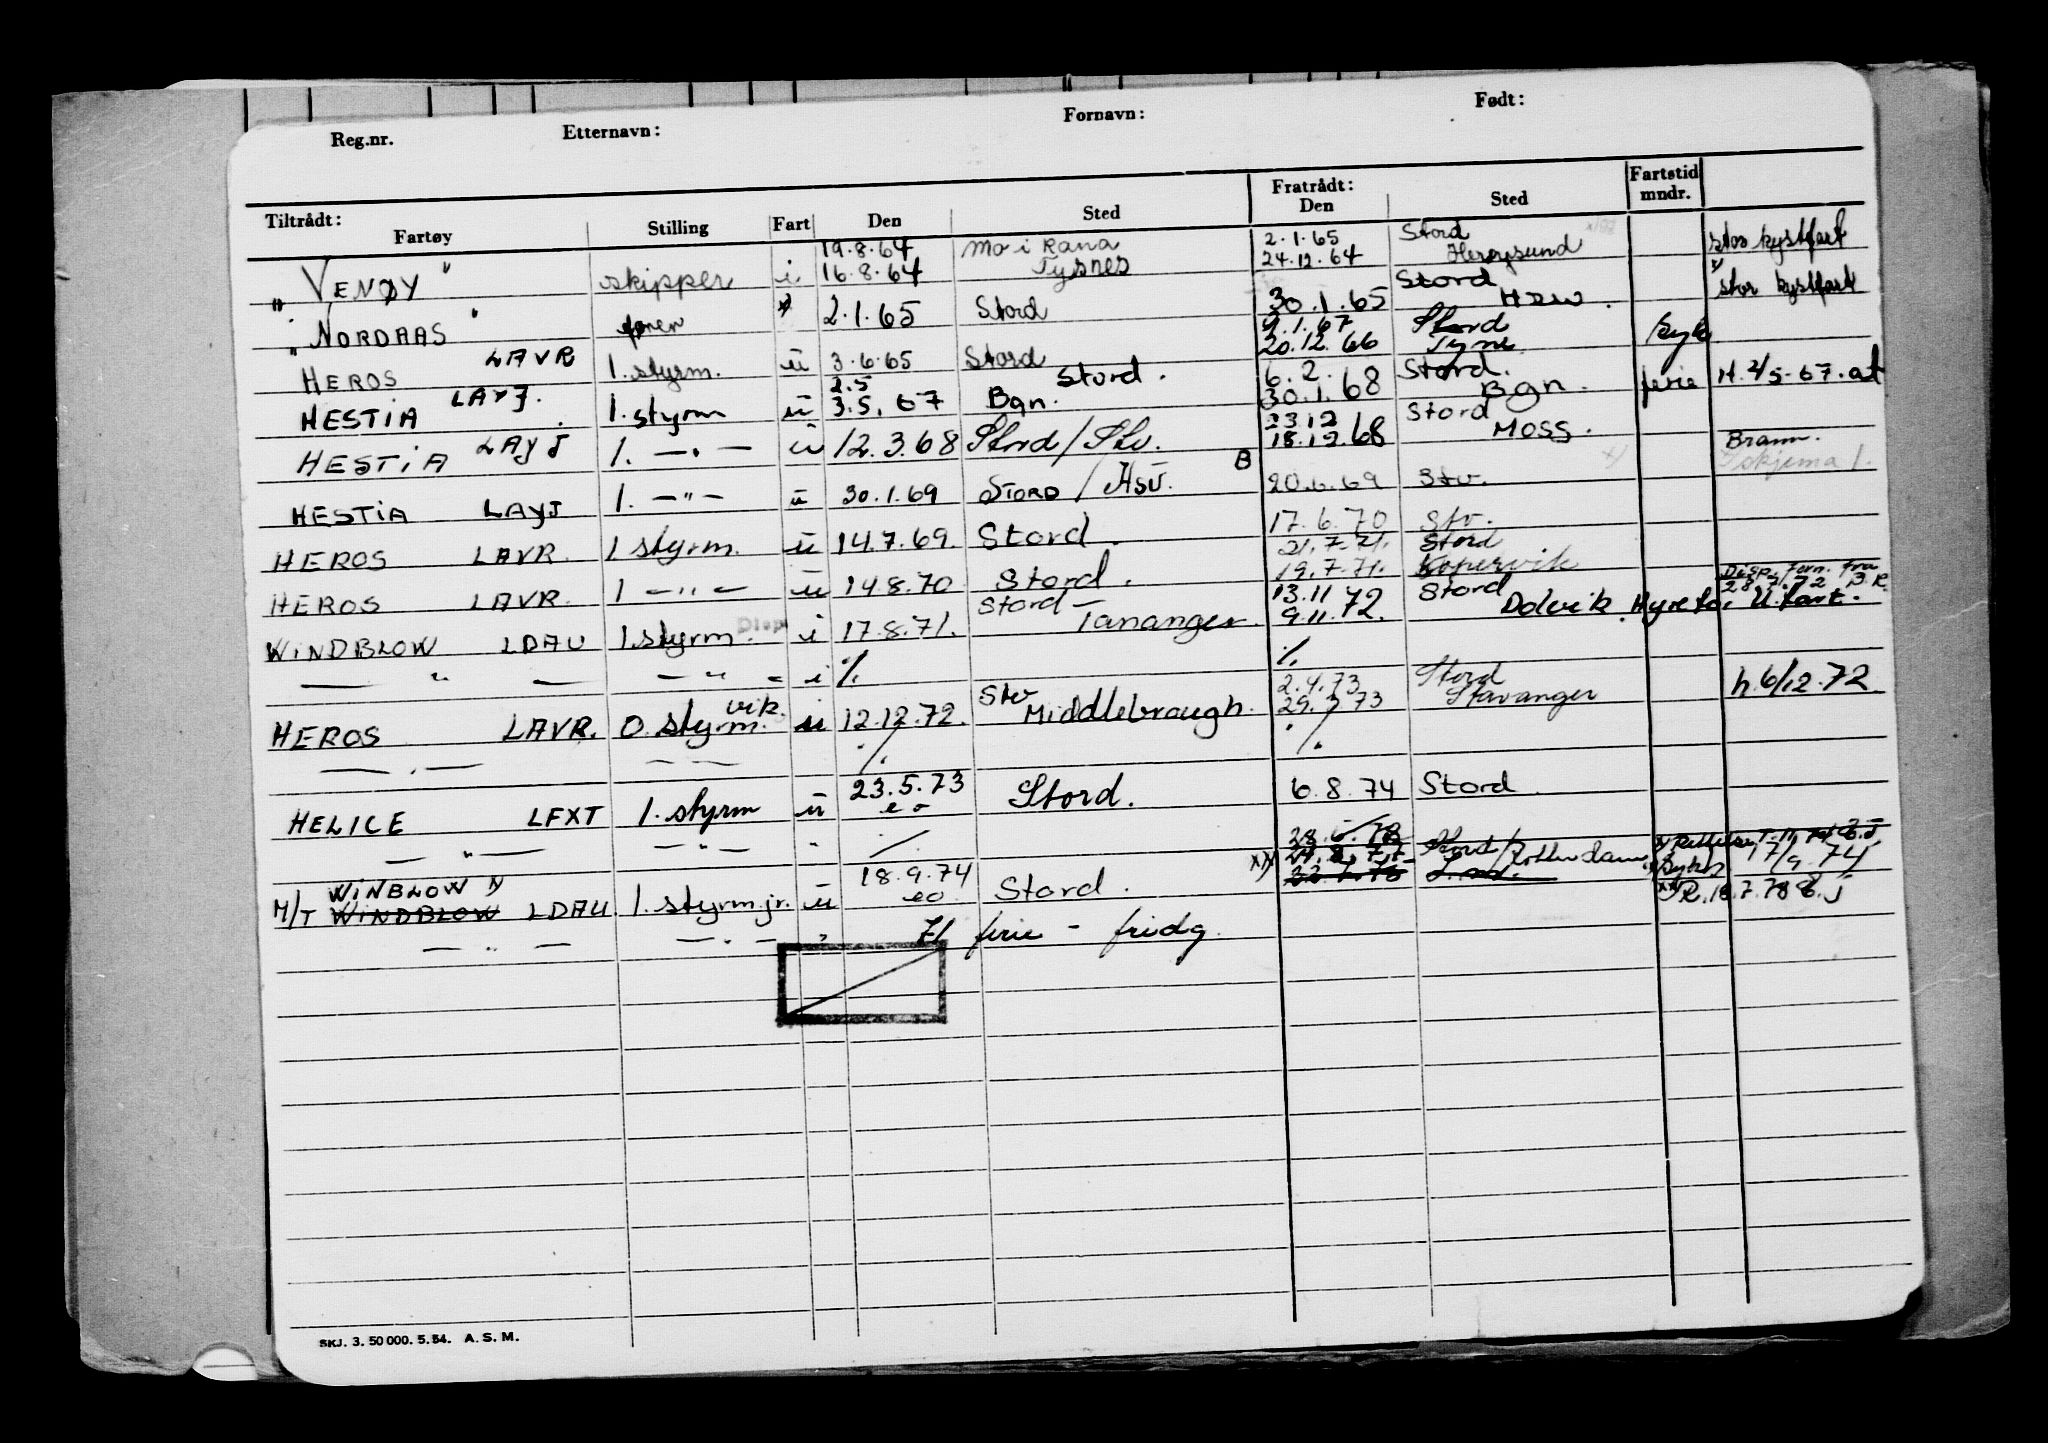 Reg.nr. Etternavn: Fornavn: Født:
Tiltrådt: Fratrådt: Fartstid
Fartøy Stilling Fart Den Sted Den Sted mndr.
19.8.64 Mo i Rana 2.1.65 Stord
" VENØY " skipper i 16.8.64 Tysnes 24.12.64 Herøysund stor kystfart
Stord
" NORDAAS " fører 2.1.65 Stord 30.1.65 H2W. stor kystfart
2.1.67 Stord
HEROS LAVR 1. styrm. u 3.6.65 Stord 20.12.66 Tyne
2.5 Stord. 6.2.68 Stord.
HESTIA LAYJ. 1. styrm u 3.5.67 Bgn. 30.1.68 Bgn. ferie H. 2/5-67. at
23.12 Stord
HESTIA LAYJ 1. — " — u 12.3.68 Stord / Stv. 18.12.68 MOSS.
B Bramm.
HESTIA LAYJ 1. — " — u 30.1.69 STORD / 20.6.69 Stv. skjema 1.
HEROS LAVR. 1 styrm. u 14.7.69. Stord. 17.6.70 Stv.
21.7.71. Stord
HEROS LAVR. 1 — " — u 14.8.70 Stord. 19.7.71. Kopervik
Stord — 13.11 Stord Disp. forn. fra 28.1.72 B.R.
WINDBLOW LDAU 1. styrm. Disp i 17.8.71. Tananger. 9.11.72. Dolvik. Hyre for U.fart.
— " — — " — i ·/. ·/.
Stv 2.4.73 Stord
HEROS LAVR. O. styrm. vik. u 12.12.72. Middlebrough. 29.3.73 Stavanger h. 6/12.72
— " — — — ·/. ·/.
23.5.73
HELICE LFXT 1. styrm u eo Stord. 6.8.74 Stord
— " — — " — " ·/.
WINBLOW 18.9.74 xx)
M/T WINDBLOW LDAU 1. styrm. jr. u eo Stord. 17/9.74
xx) R. 18.7.78 E.J
— " — — " — " 71 ferie - fridg.
SKJ. 3. 50 000. 5. 54. A. S. M.